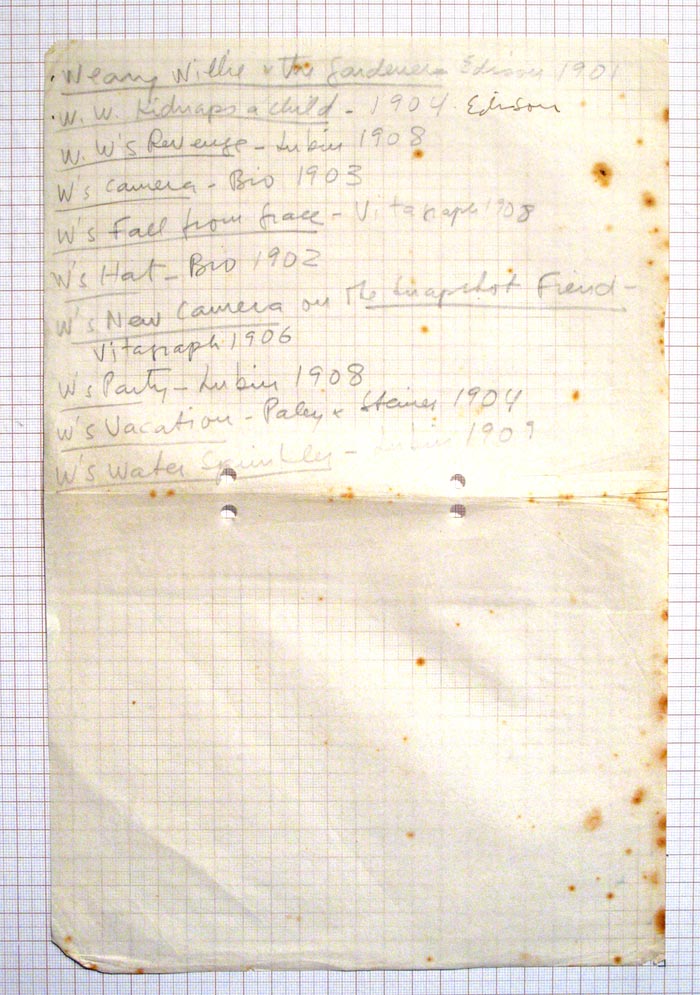 . Weary Willie & the Gardener - Edison 1901
. W. W. Kidnaps a child - 1904. Edison
W. W's Revenge - Lubin 1908
W's Camera - Bio 1903
W's Fall from Grace - Vitagraph 1908
W's Hat - Bio 1902
W's New Camera or The Snapshot Fiend -
Vitagraph 1906
W's Party - Lubin 1908
W's Vacation - Paley & Steiner 1904
W's Water - Lubin 1909